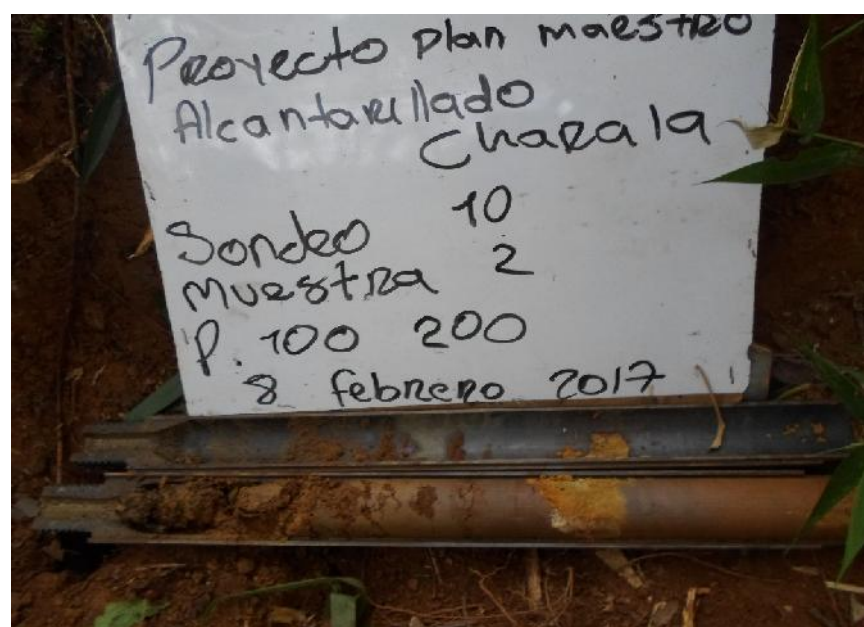 Proyecto plan maestro
Alcantarillado
Charala
Sondeo 10
muestra 2
P. 100 200
8 febrero 2017